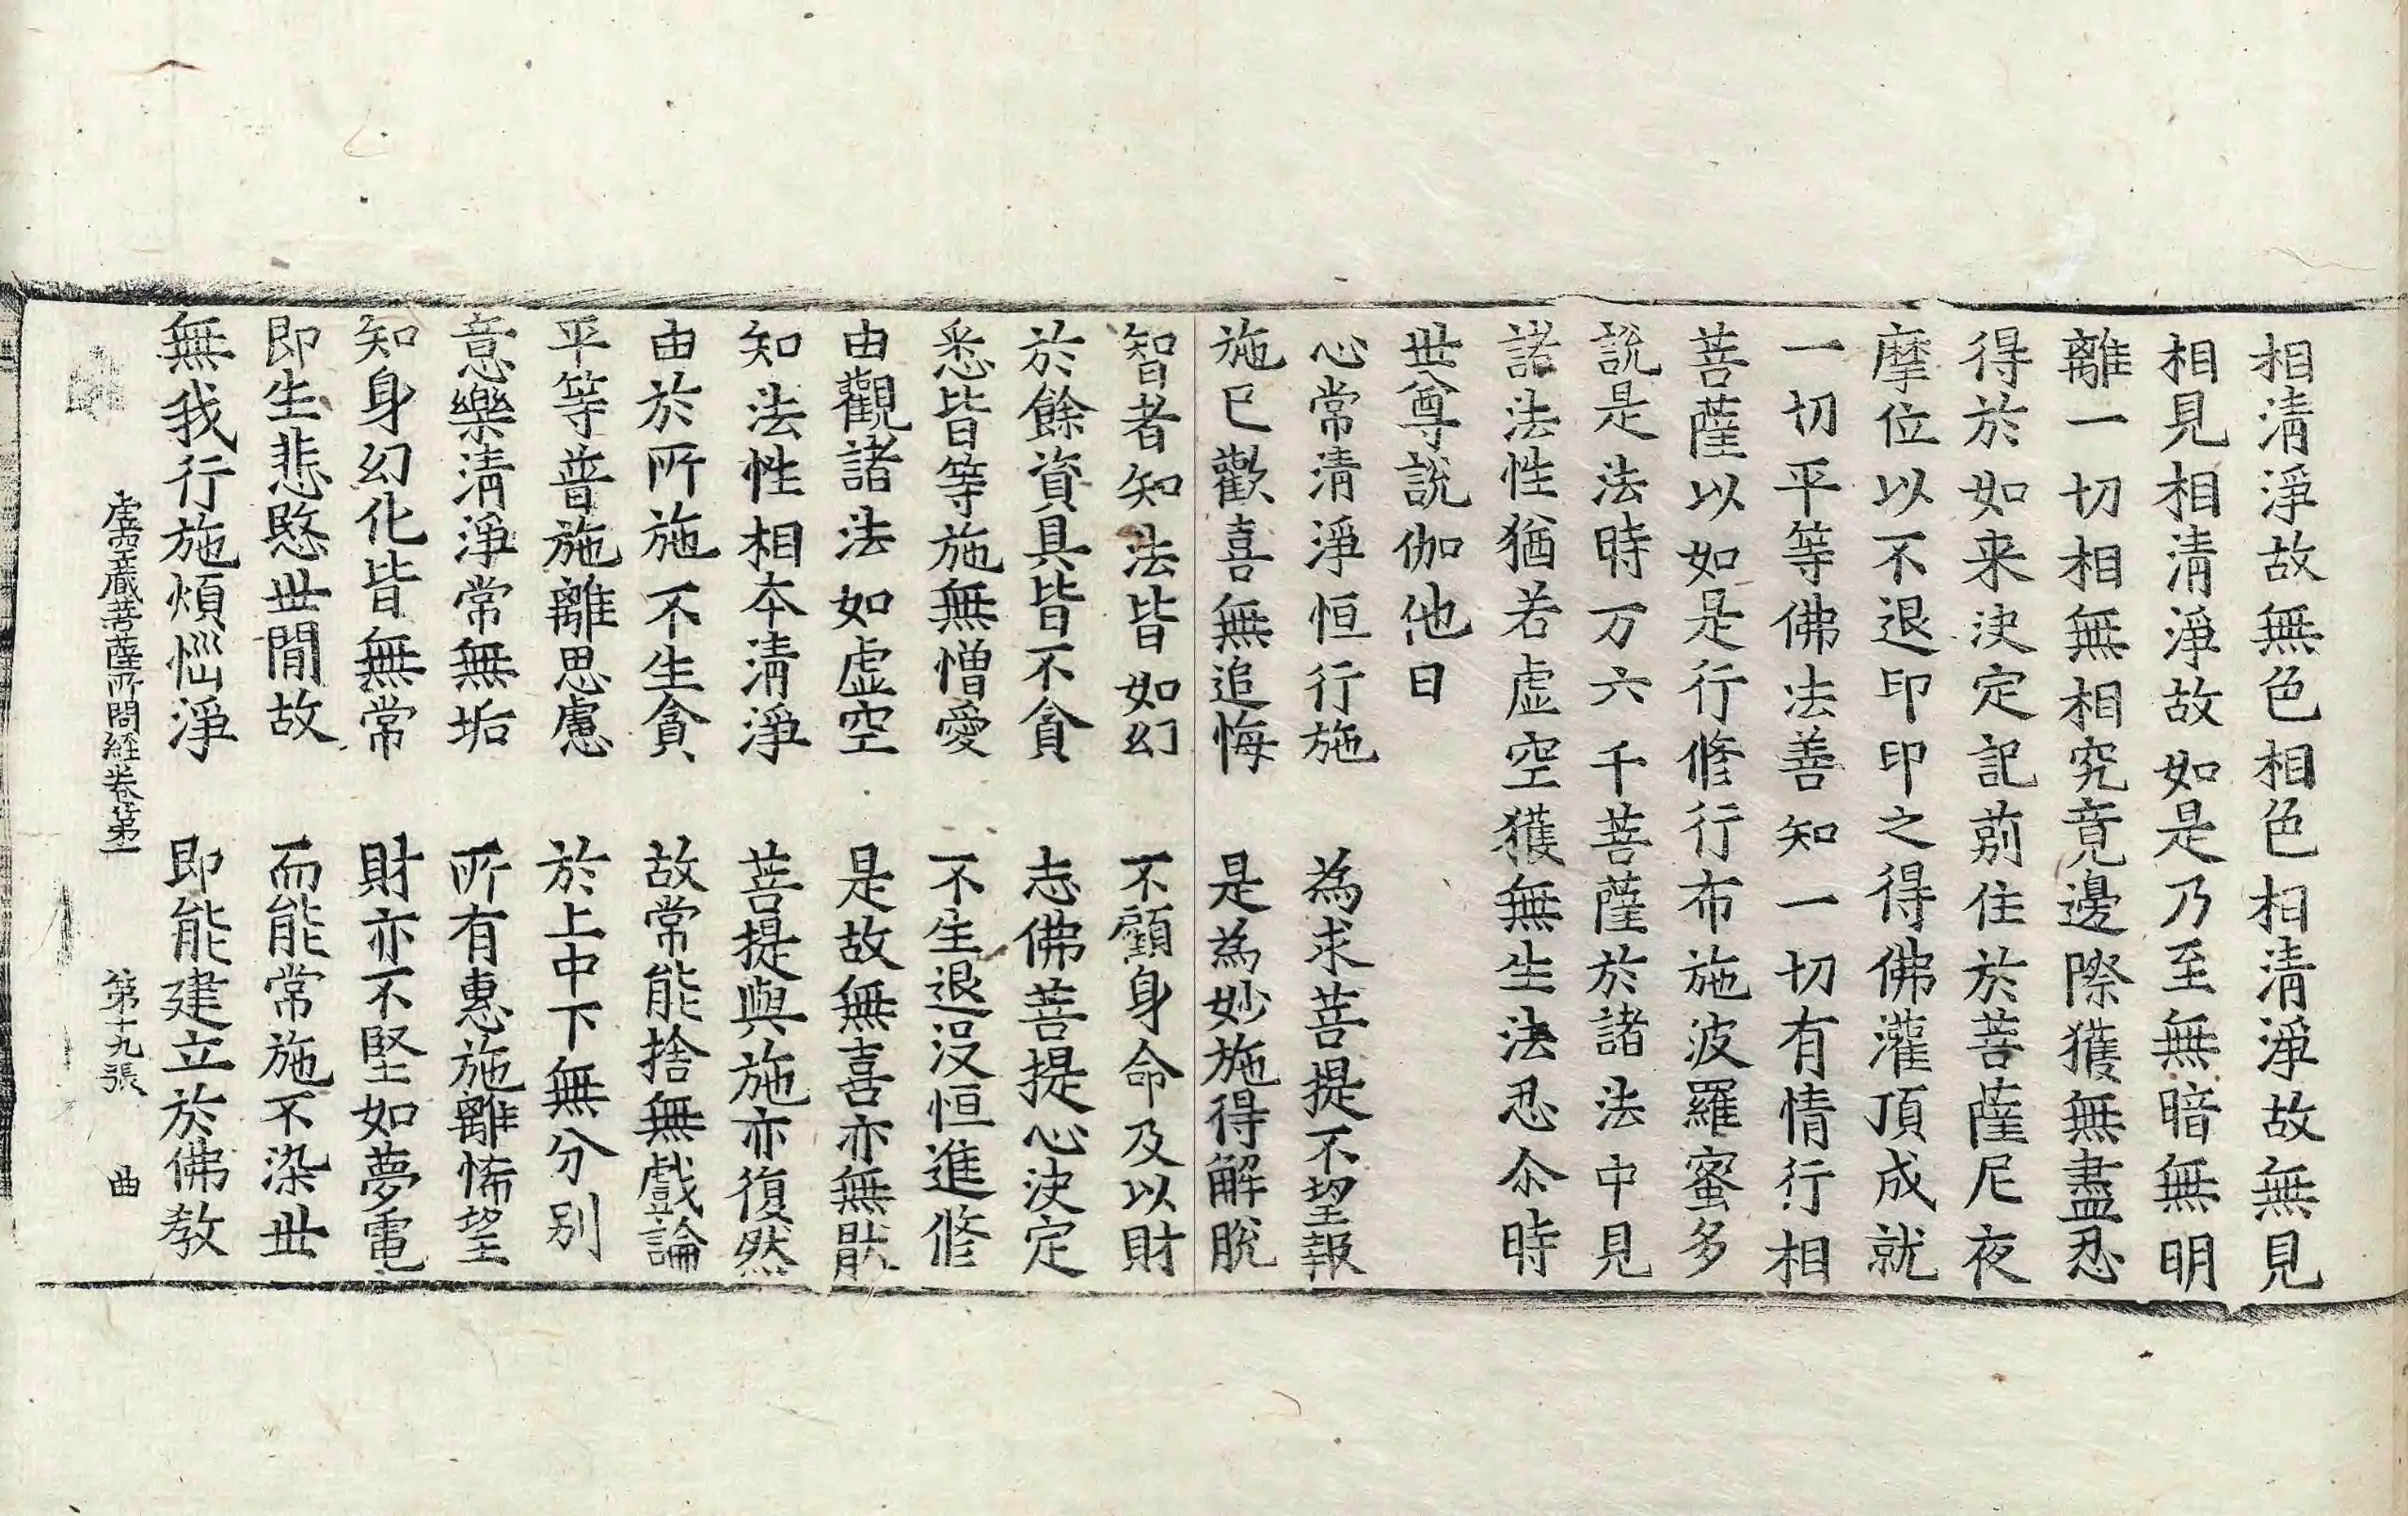 相清淨故無色相色相清淨故無見
相見相清淨故如是乃至無暗無明
離一切相無相究竟邊際獲無盡忍
得於如来決定記莂住於菩薩尼夜
摩位以不退印印之得佛灌頂成就
一切平等佛法善知一切有情行相
菩薩以如是行修行布施波羅蜜多
說是法時万六千菩薩於諸法中見
諸法性猶若虛空獲無生法忍尒時
世尊說伽他曰
心常清淨恒行施　為求菩提不望報
施已歡喜無追悔　是為妙施得解脫
智者知法皆如幻　不顧身命及以財
於餘資具皆不貪　志佛菩提心決定
悉皆等施無憎愛　不生退沒恒進修
由觀諸法如虛空　是故無喜亦無猒
知法性相本清淨　菩提與施亦復然
由於所施不生貪　故常能捨無戲論
平等普施離思慮　於上中下無分別
意樂清淨常無垢　所有惠施離悕望
知身幻化皆無常　財亦不堅如夢電
即生悲愍世間故　而能常施不染世
無我行施煩惱淨　即能建立於佛教
虛空藏菩薩所問経卷第一　第十九張　曲